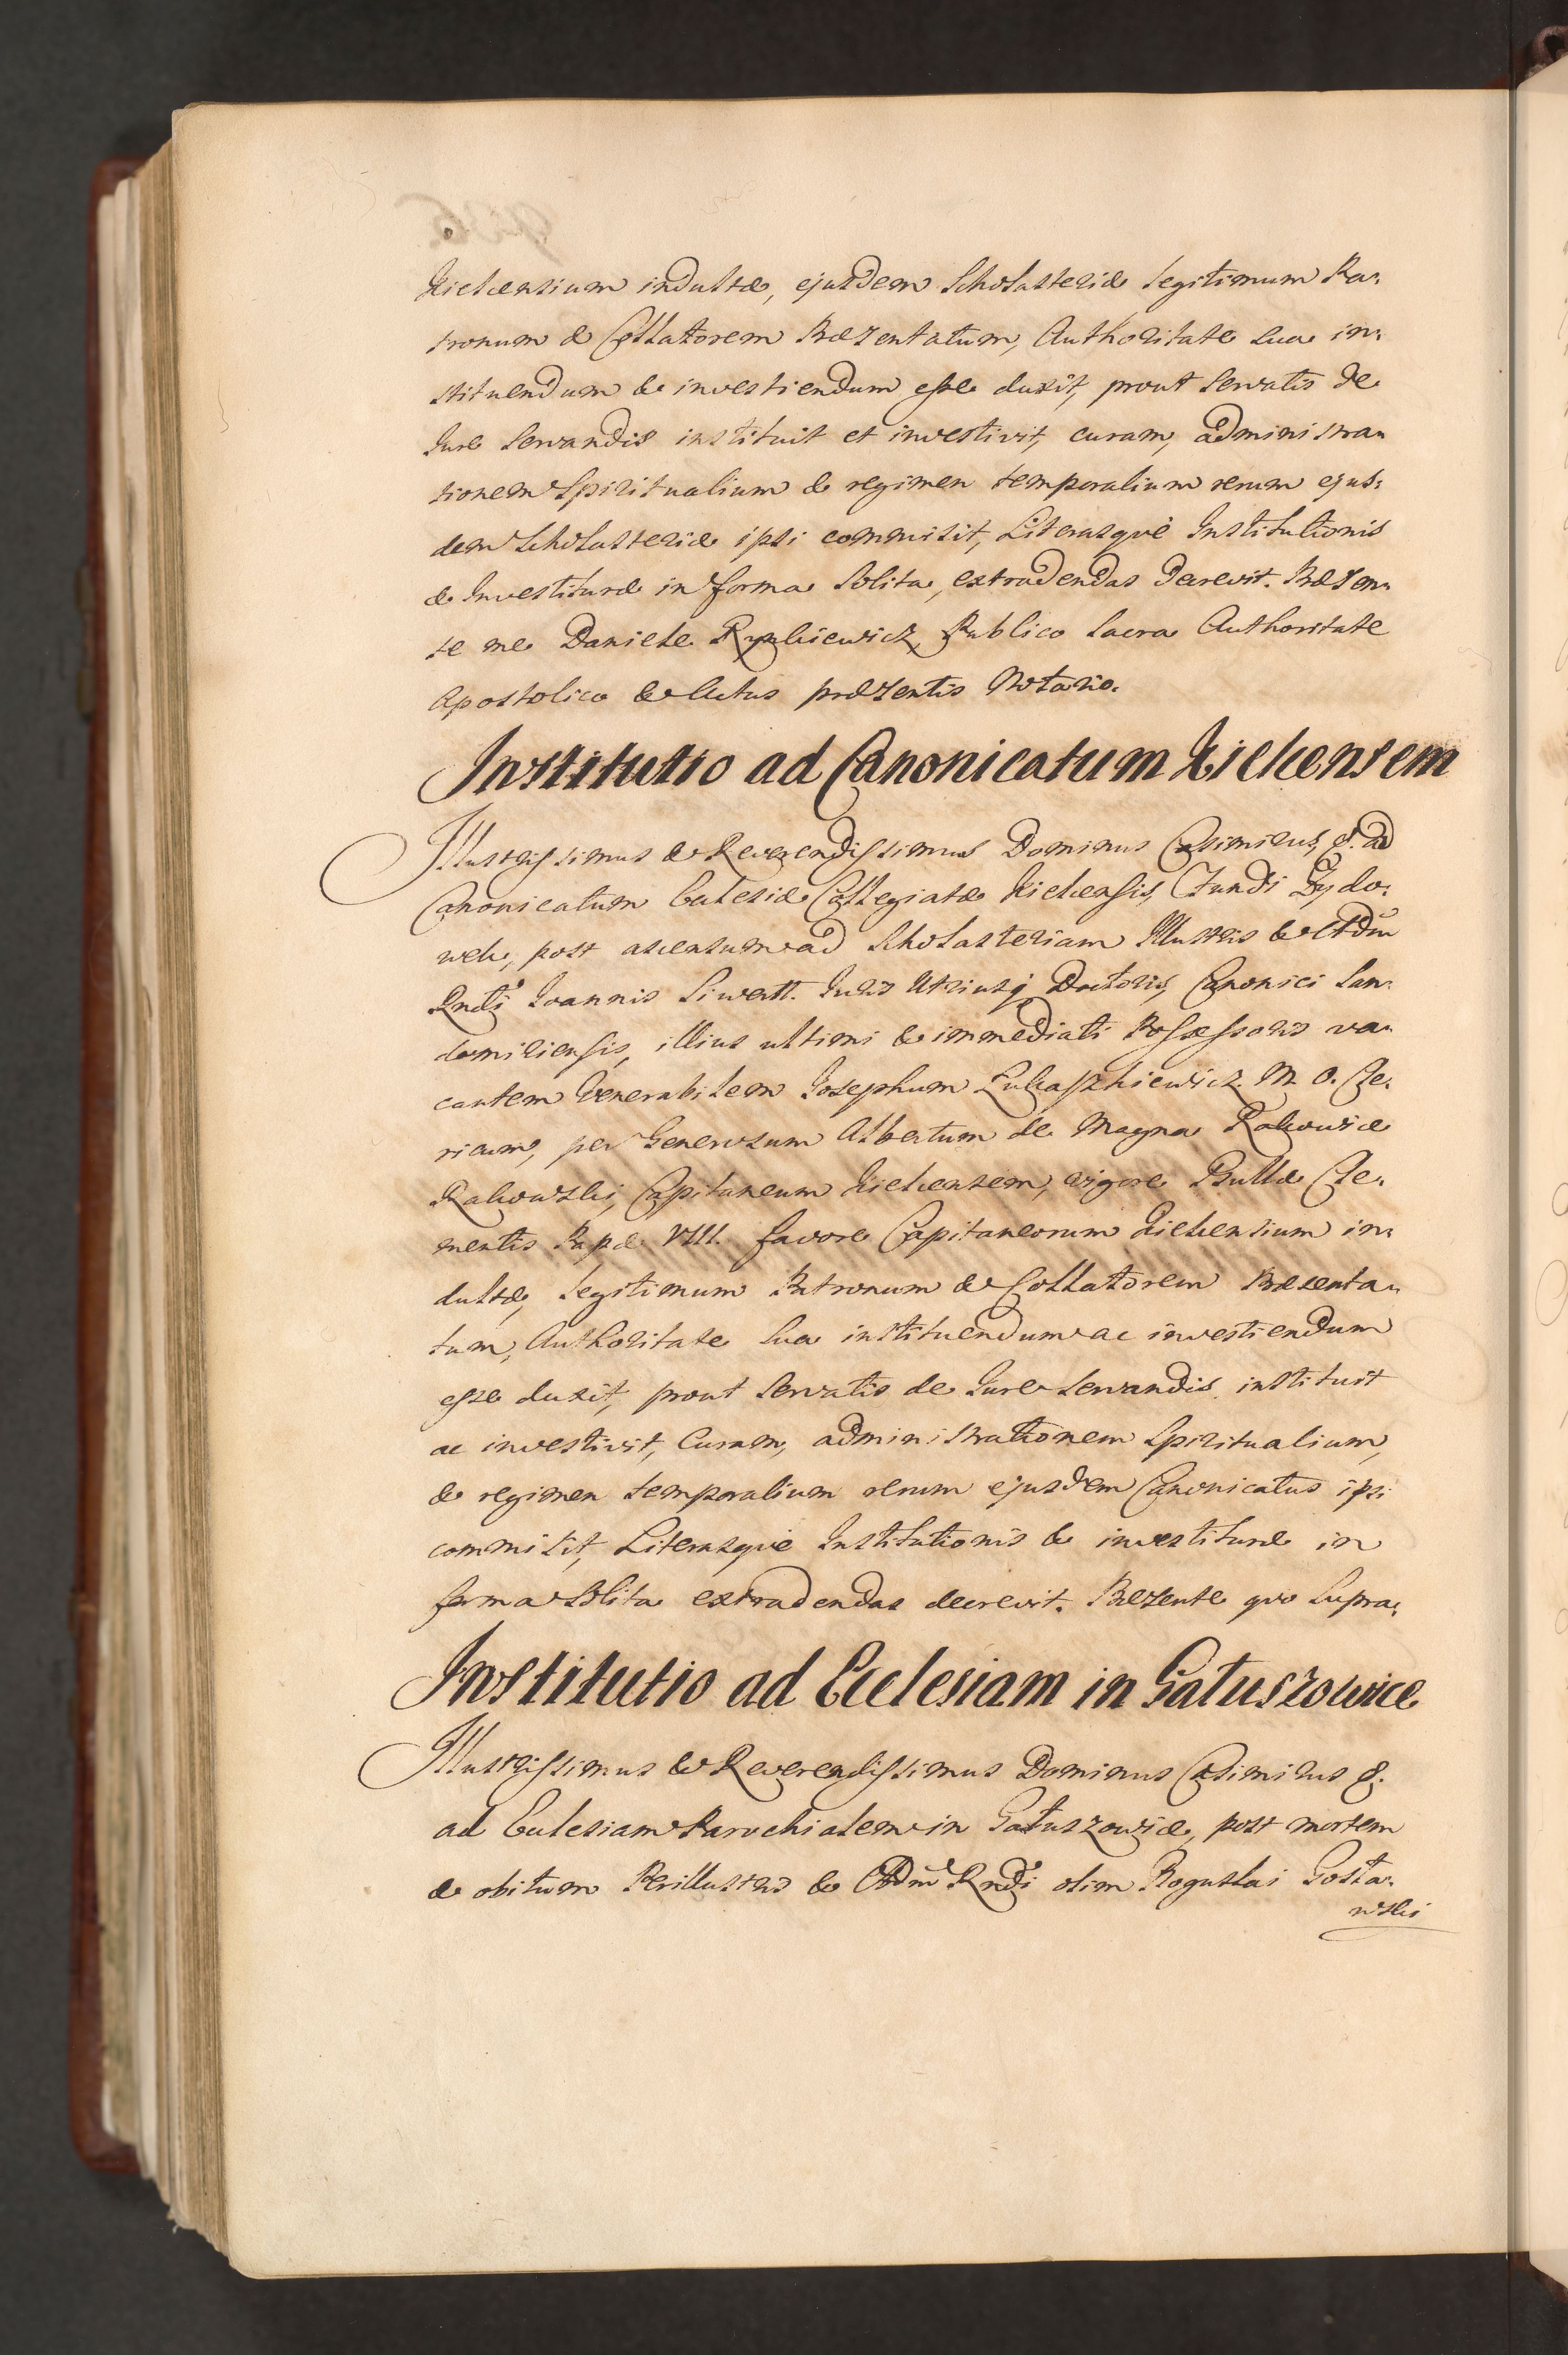 Kielcensium indultæ, ejusdem Scholasteriæ legitimum Pa:
tronum & Collatorem Præsentatum, Authoritate sua in:
stituendum & investiendum esse duxit, prout servatis de
Jure servandis instituit et investivit, curam, administra:
tionem Spiritualium & regimen temporalium rerum ejus:
dem Scholasteriæ ipsi commisit, Literasque Institutionis
& Investituræ in forma solita, extradendas decrevit. Præsen:
te me Daniele Publico Sacra Authoritate
Apostolica & Actus præsentis Notario.
Institutio ad Canonicatum Kielcensem
Illustrissimus & Reverendissimus Dominus Casimirus, &. ad
Canonicatum Eccleæsiæ Collegiatæ Kielcensis, Fundi Zydo:
wek, post ascensum ad Scholasteriam Illustris & Adm
Rndi Joannis Siwert. Juris Utriusq Doctoris, Canonici San:
domiriensis, illius ultimi & immediati Possessoris va:
cantem Venerabilem Josephum Łukaszkiewicz M. O. Cle:
ricum, per Generosum Albertum de Magna Rakowice
Rakowski, Capitaneum Kielcensem, vigore Bullæ Cle:
mentis Papæ VIII. favore Capitaneorum Kielcensium in:
dultæ, legitimum Patronum & Collatorem Præsenta:
tum, Authoritate sua instituendum ac investiendum
esse duxit, prout servatis de Jure servandis instituit
ac investivit, Curam, administrationem Spiritualium,
& regimen temporalium rerum ejusdem Canonicatus ipsi
commisit, Literasque Institutionis & investituræ in
forma solita extradendas decrevit. Præsente quo supra.
Institutio ad Ecclesiam in Gałuszowice
Illustrissimus & Reverendissimus Dominus Casimirus &.
ad Ecclesiam Parochialem in Gałuszowice, post mortem
& obitum Perillustris & Adm Rndi olim Boguslai Gosła:
wski